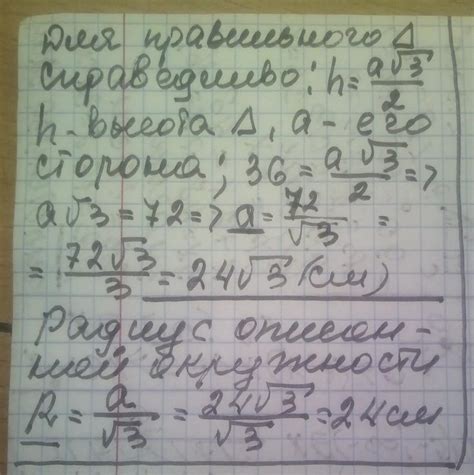 Для правильного Δ
справедливо: h = a√3/2
h - высота Δ, a - его
сторона; 36 = a√3/2 =>
a√3 = 72 => a = 72/√3 =
= 72√3/3 = 24√3 (см)
Радиус описан-
ной окружности
R = a/√3 = 24√3/√3 = 24 см